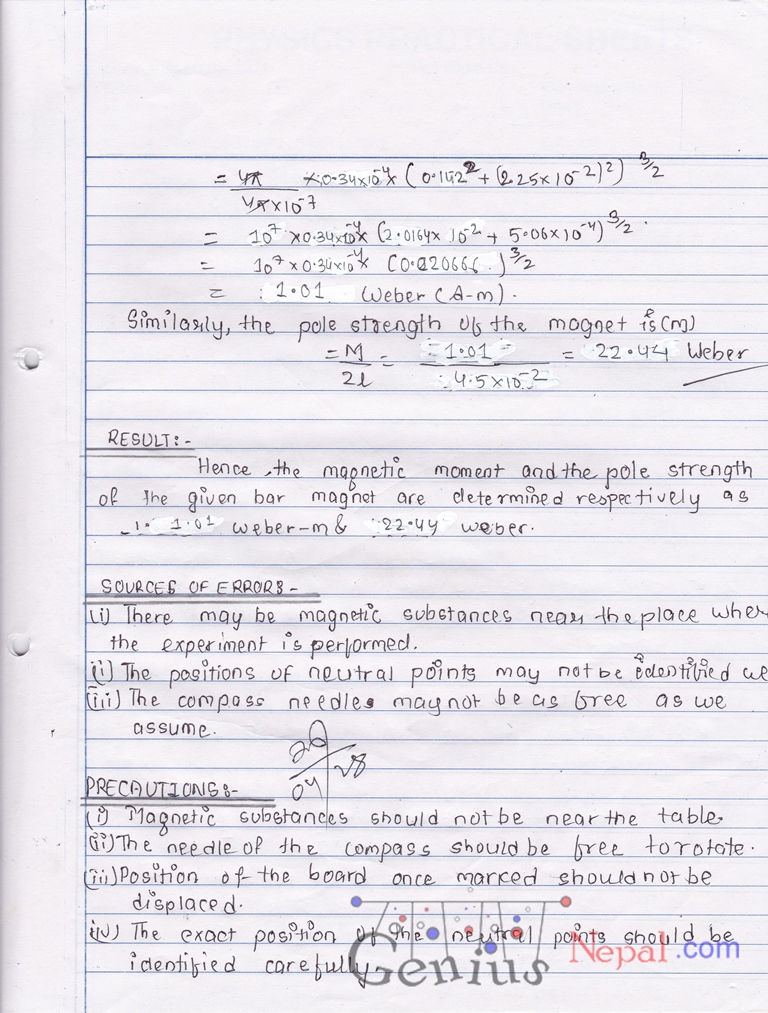 = 4π × 0.34×10⁻⁴ × (0.142² + (2.25×10⁻²)²)^3/2
4π×10⁻⁷
= 10⁷ × 0.34×10⁻⁴ × (2.0164×10⁻² + 5.06×10⁻⁴)^3/2.
= 10⁷ × 0.34×10⁻⁴ × (0.020666)^3/2
= 1.01 Weber (A-m).
Similarly, the pole strength of the magnet is (m)
= M/2l = 1.01/4.5×10⁻² = 22.44 Weber
RESULT:-
Hence, the magnetic moment and the pole strength
of the given bar magnet are determined respectively as
1.01 weber-m & 22.44 weber.
SOURCES OF ERRORS-
(i) There may be magnetic substances near the place wher
the experiment is performed.
(ii) The positions of neutral points may not be identified we
(iii) The compass needles may not be as free as we
assume.
PRECAUTIONS:-
(i) Magnetic substances should not be near the table.
(ii) The needle of the compass should be free to rotate.
(iii) Position of the board once marked should not be
displaced.
(iv) The exact position of the neutral points should be
identified carefully.
Genius Nepal.com